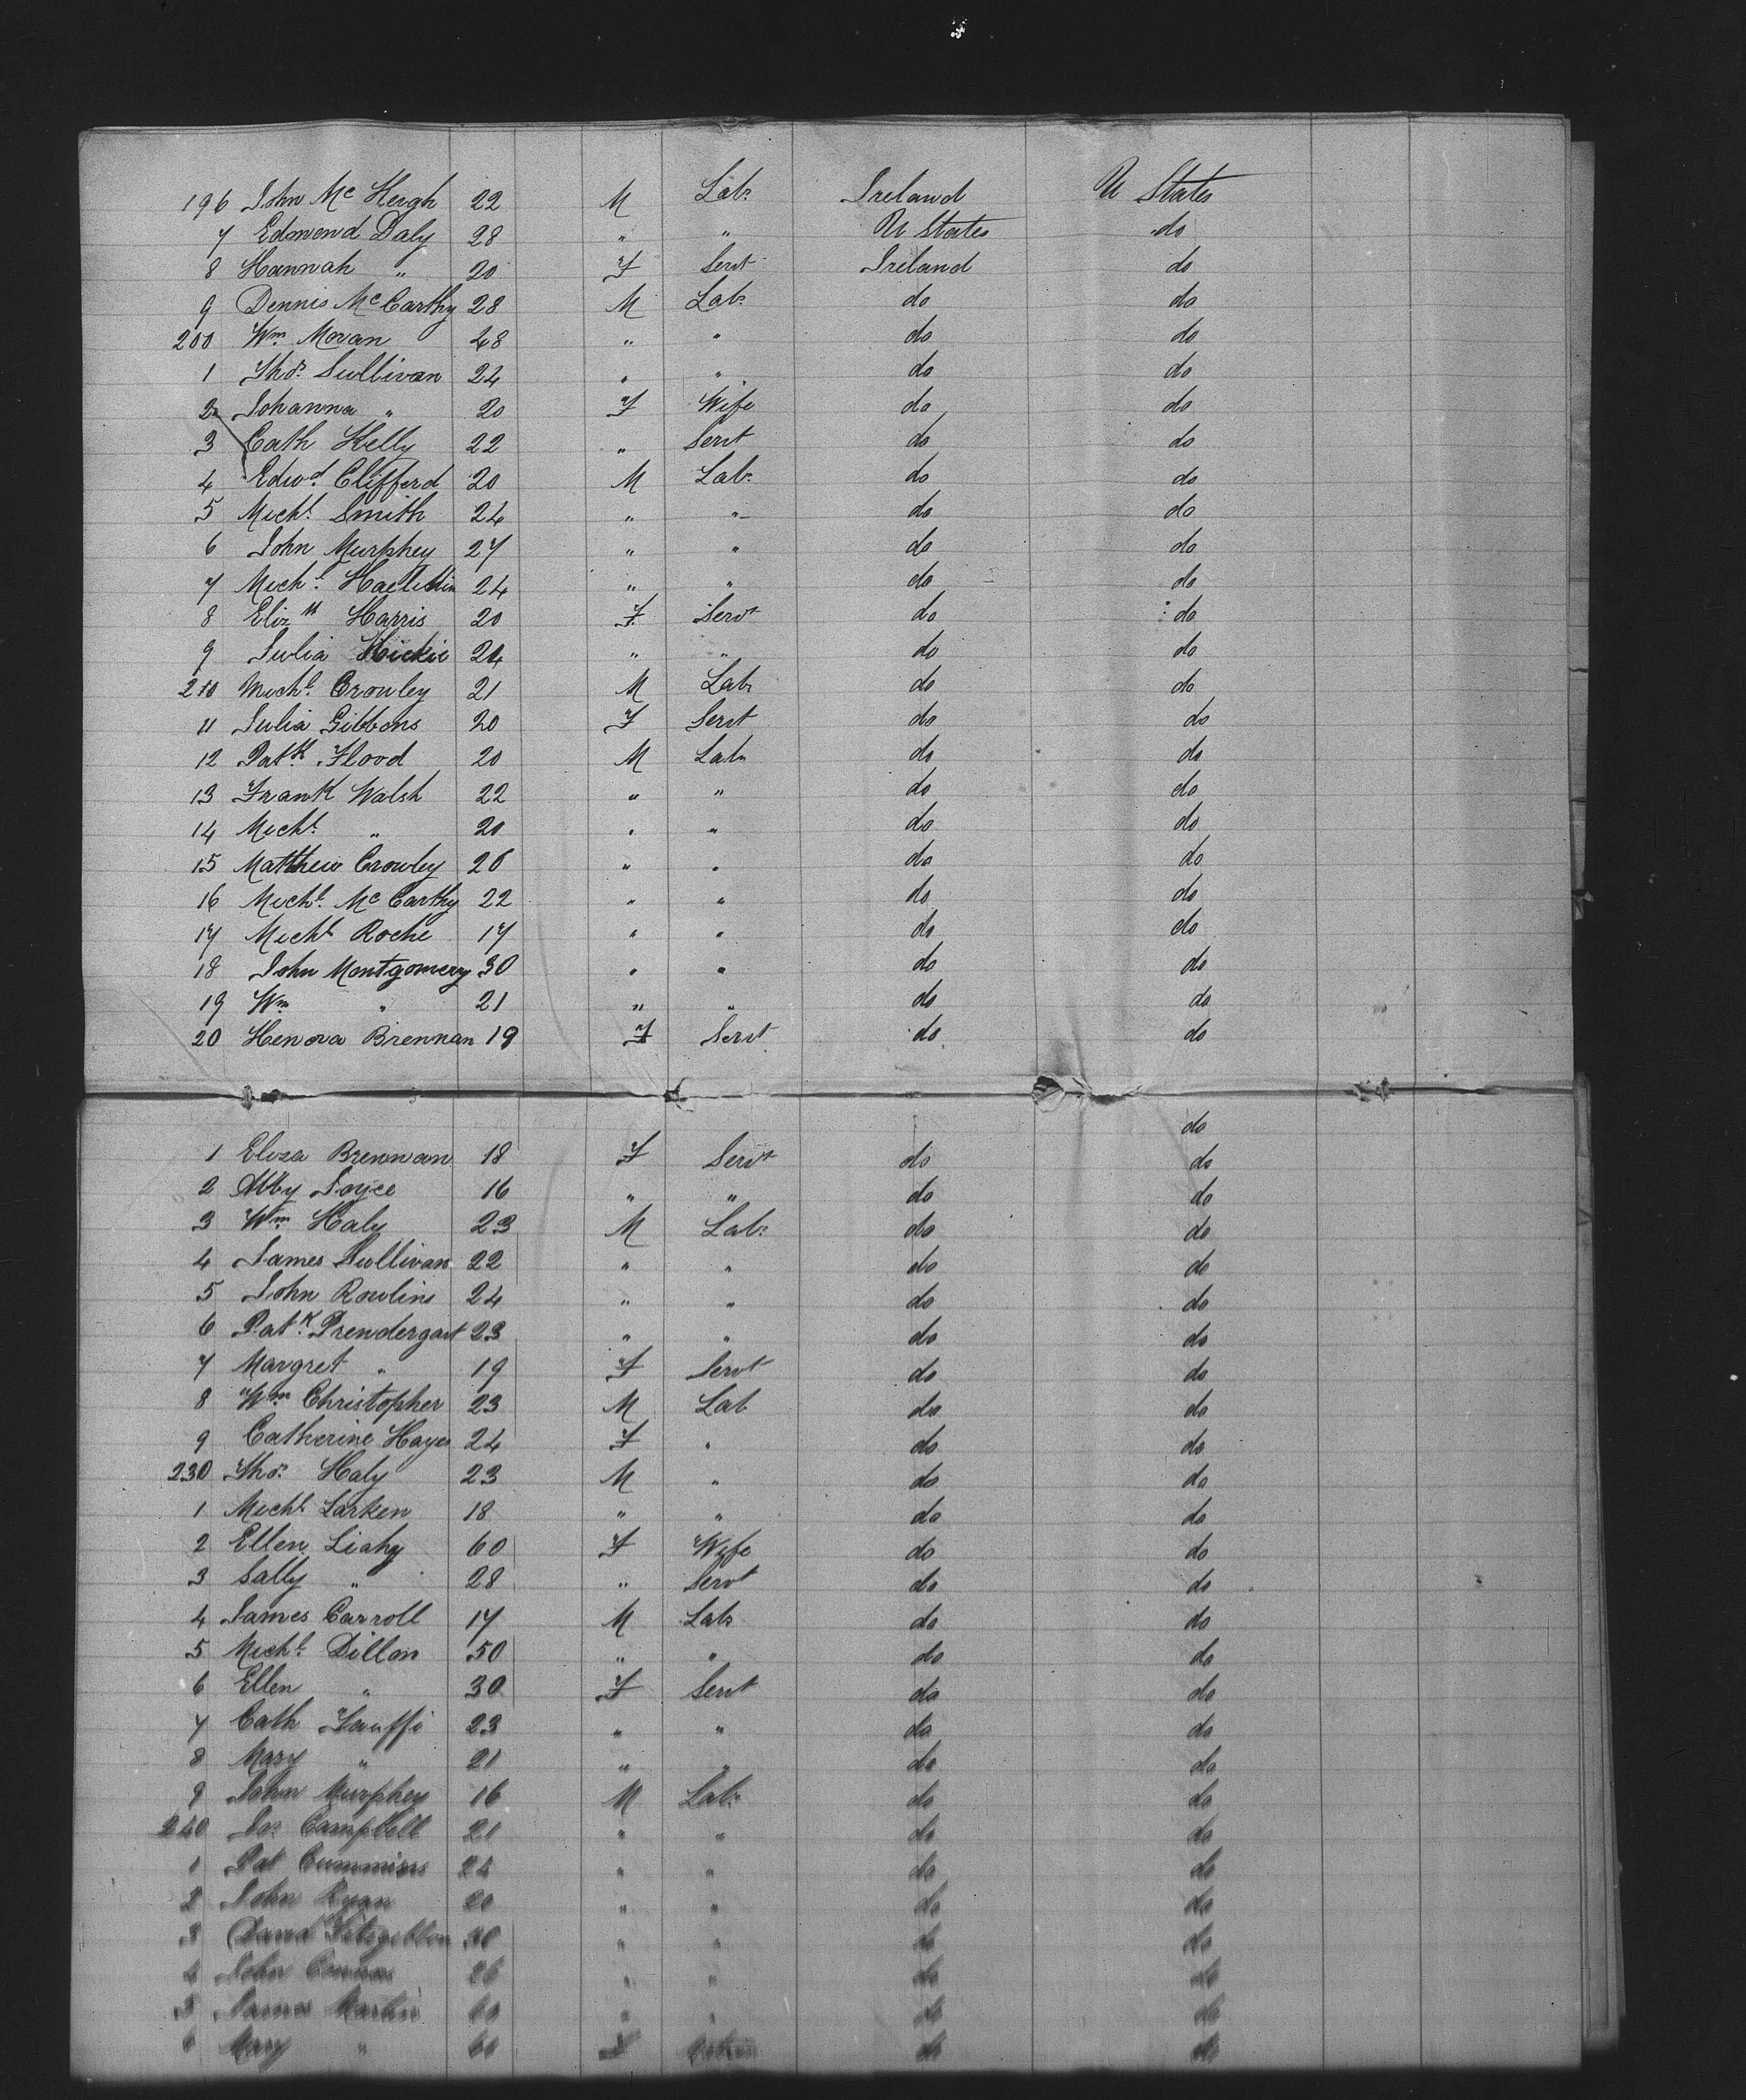 196 John Mc Heigh 22 M Labr Ireland U States
7 Edmond Daly 28 " " U States do
8 Hannah " 20 F Servt Ireland do
9 Dennis McCarthy 28 M Labr do do
200 Wm Moran 48 " " do do
1 Thos Sullivan 24 " " do do
2 Johanna " 20 F Wife do do
3 Cath Kelly 22 " Servt do do
4 Edwd Clifferd 20 M Labr do do
5 Michl Smith 24 " " do do
6 John Murphey 27 " " do do
7 Michl 24 " " do do
8 Elizth Harris 20 F Servt do do
9 Julia Hickie 24 " " do do
210 Michl Crowley 21 M Labr do do
11 Julia Gibbons 20 F Servt do do
12 Patk Flood 20 M Labr do do
13 Frank Walsh 22 " " do do
14 Michl " 20 " " do do
15 Matthew Crowley 26 " " do do
16 Michl McCarthy 22 " " do do
17 Michl Roche 17 " " do do
18 John Montgomery 30 " " do do
19 Wm " 21 " " do do
20 Henora Brennan 19 F Servt do do
do
1 Eliza Brennan 18 F Servt do do
2 Abby Joyce 16 " " do do
3 Wm Haly 23 M Labr do do
4 James Sullivan 22 " " do do
5 John Rawlins 24 " " do do
6 Patk Prendergast 23 " " do do
7 Margret " 19 F Servt do do
8 Wm Christopher 23 M Lab do do
9 Catherine Hayes 24 F " do do
230 Thos Haly 23 M " do do
1 Michl Larken 18 " " do do
2 Ellen Liahy 60 F Wife do do
3 Sally " 28 " Servt do do
4 James Carroll 17 M Labr do do
5 Michl Dillon 50 " " do do
6 Ellen " 30 F Servt do do
7 Cath 23 " " do do
8 Mary " 21 " " do do
9 John Murphey 16 M Labr do do
240 Jas Campbell 21 " " do do
1 Pat Cummins 24 " " do do
2 John Ryan 20 " " do do
3 David Fitzgibbon 30 " " do do
4 John 26 " " do do
5 James Martin 60 " " do do
6 Mary " 60 F do do